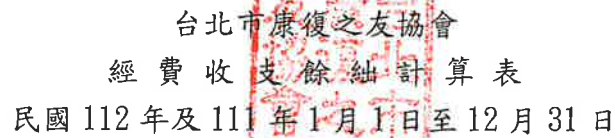 台北市康復之友協會
經費收支餘絀計算表
民國 112 年及 111 年 1 月 1 日至 12 月 31 日